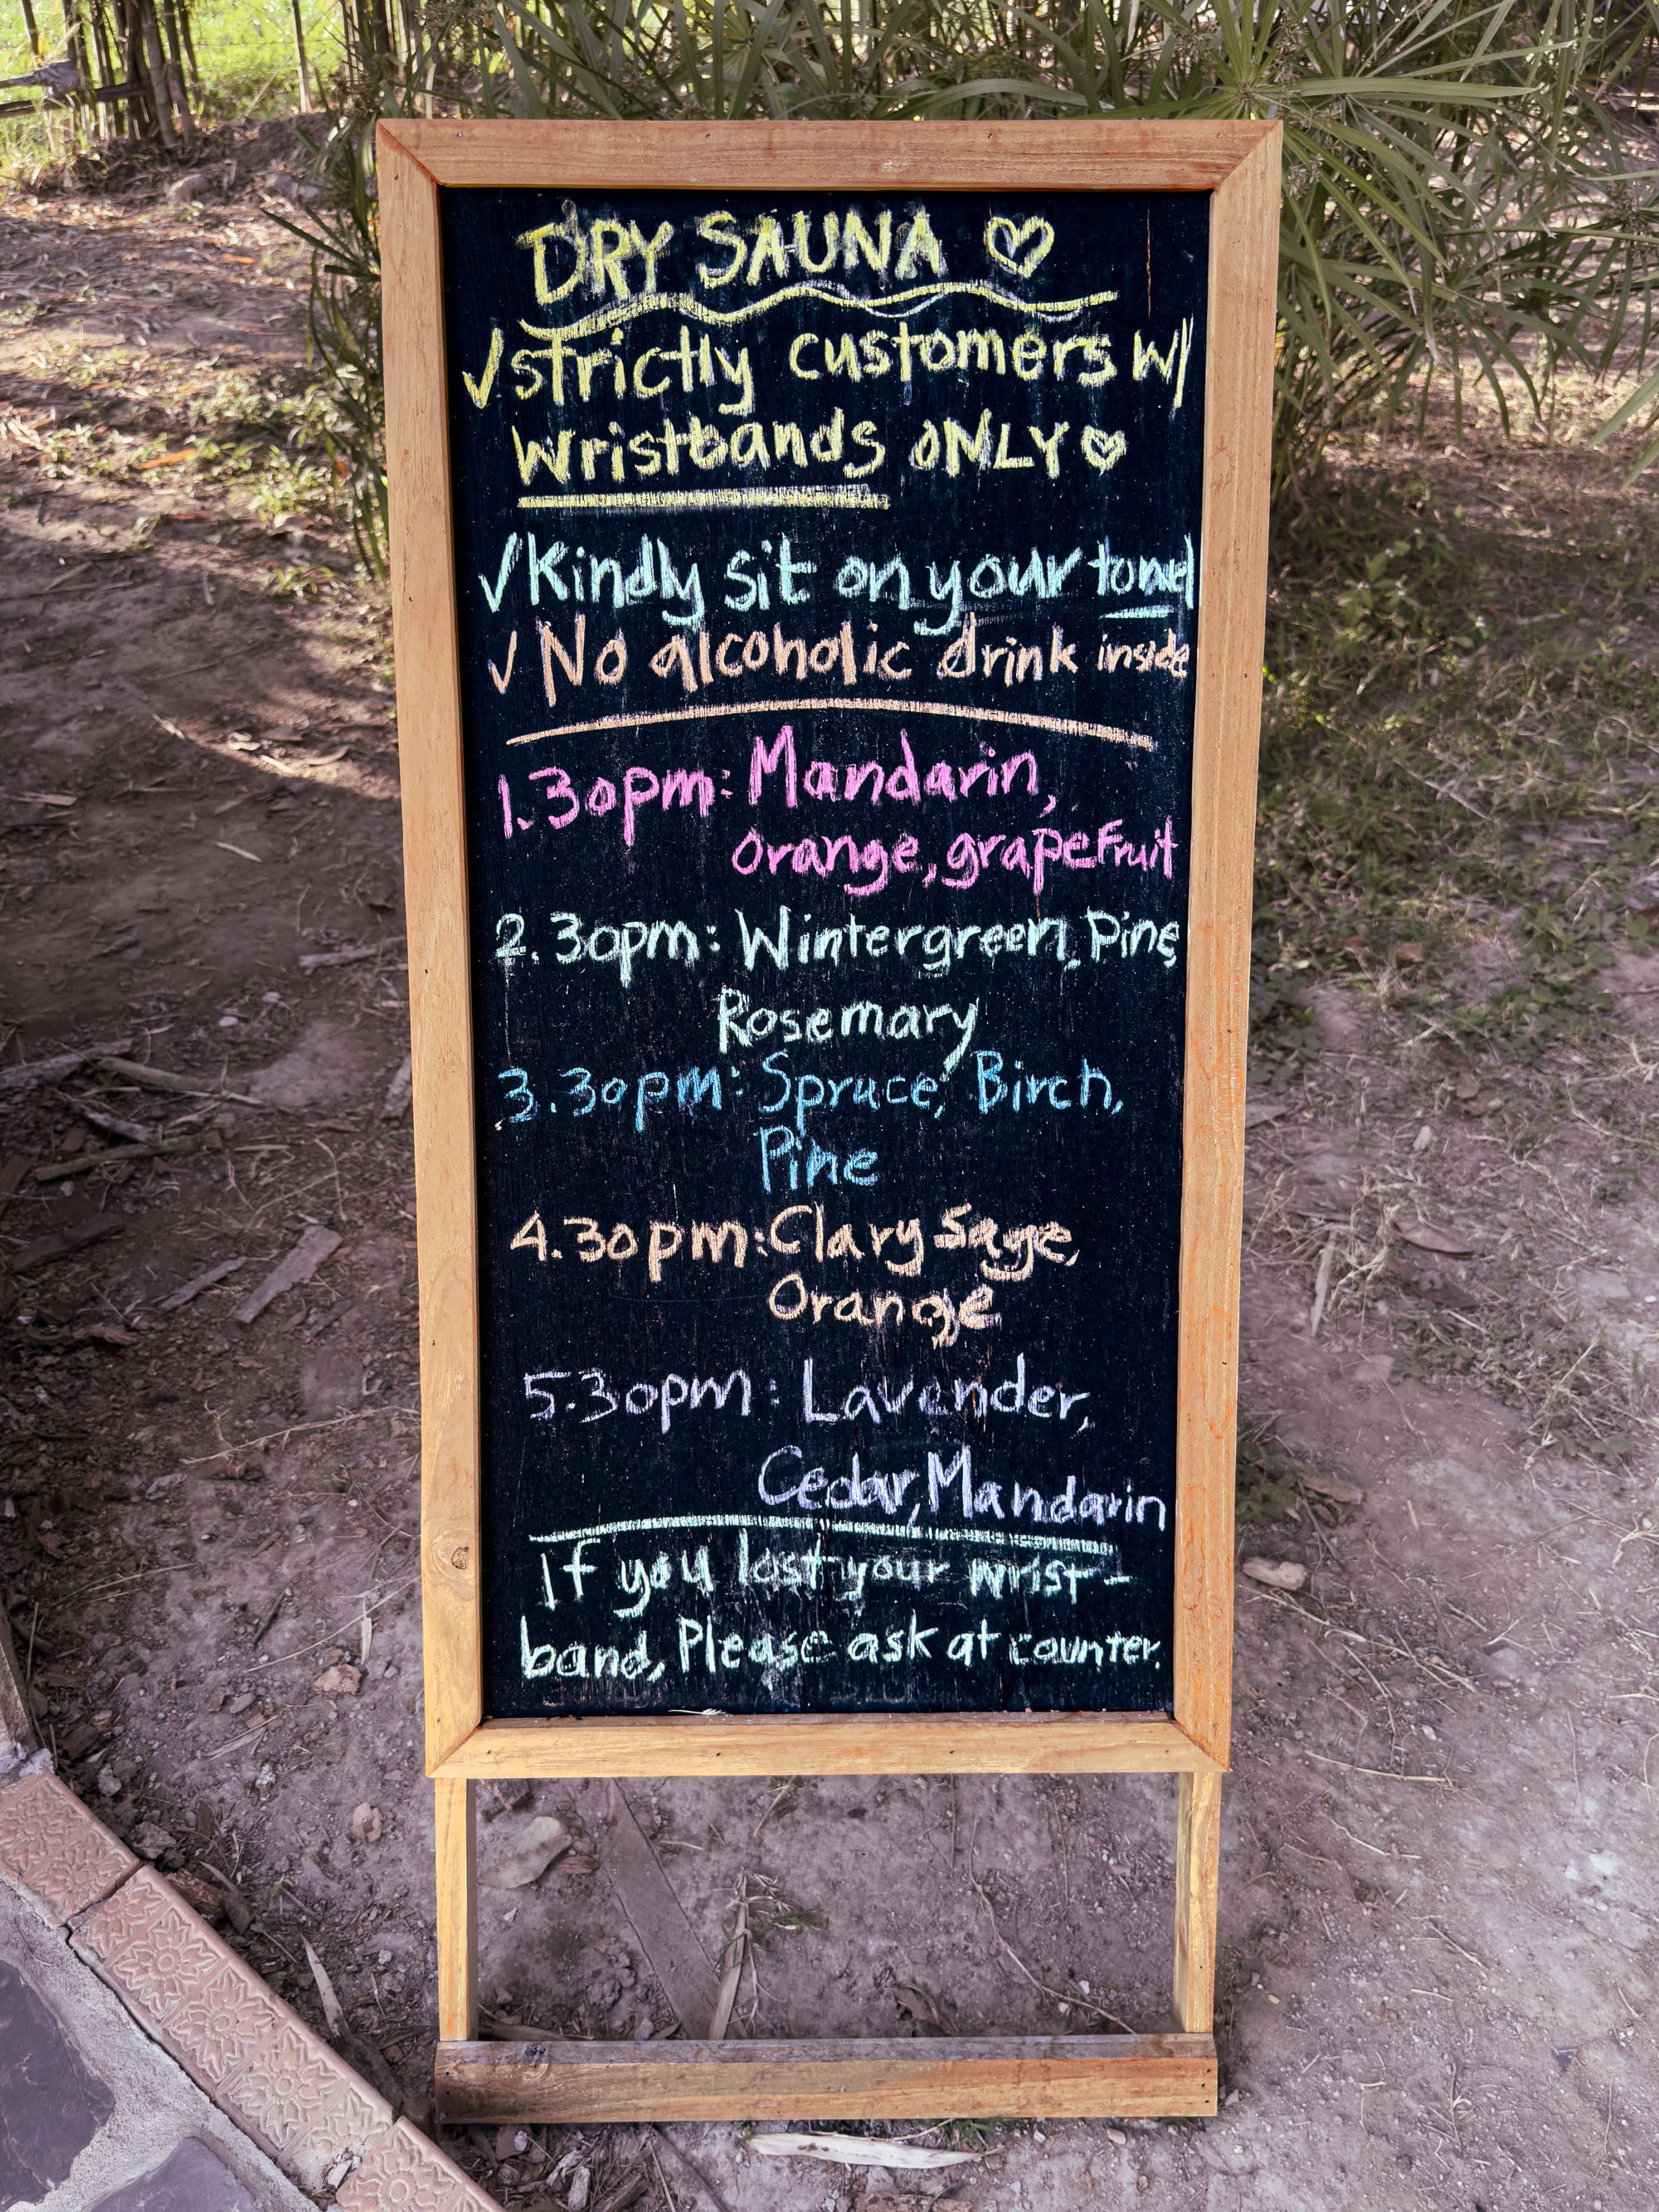 DRY SAUNA ♡
✓strictly customers w/
wristbands ONLY♡
✓Kindly sit on your towel
✓No alcoholic drink inside
1.30pm: Mandarin,
orange, grapefruit
2.30pm: Wintergreen, Pine,
Rosemary
3.30pm: Spruce, Birch,
Pine
4.30pm: Clary Sage,
Orange
5.30pm: Lavender,
Cedar, Mandarin
If you lost your wrist-
band, Please ask at counter.